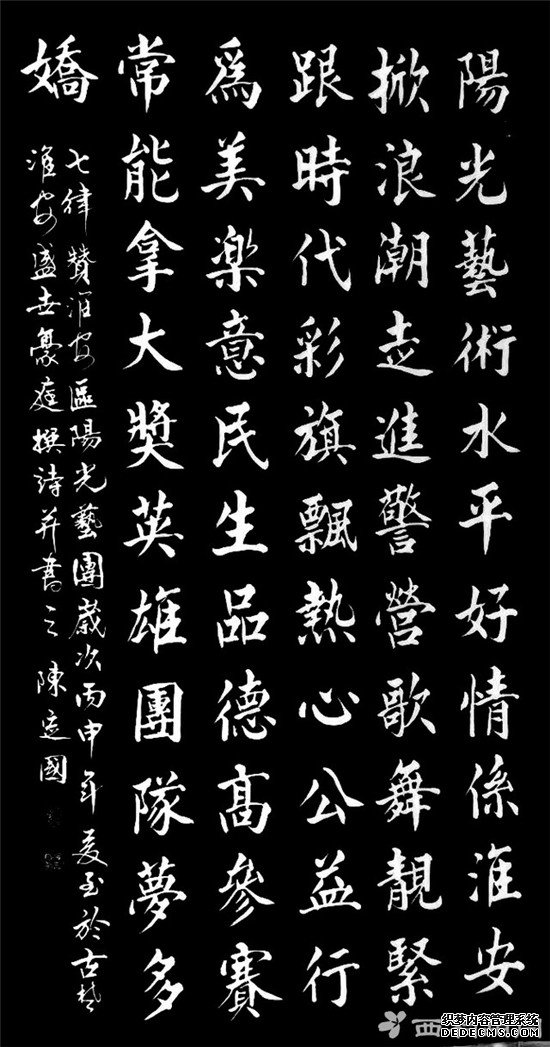 陽光藝術水平好情係淮安
掀浪潮走進警營歌舞靚緊
跟時代彩旗飄熱心公益行
爲美樂意民生品德高參賽
常能拿大獎英雄團隊夢多
嬌
七律贊淮安區陽光藝團歲次丙申年夏至於古楚
淮安盛世豪庭撰詩并書之陳定國
西
织梦内容管理系统
DEDECMS.COM